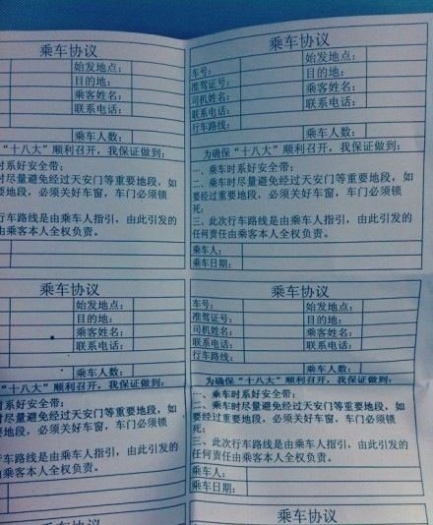 乘车协议
始发地点：
目的地：
乘客姓名：
联系电话：
乘车人数：
“十八大”顺利召开，我保证做到：
时系好安全带；
时尽量避免经过天安门等重要地段，如
要地段，必须关好车窗，车门必须锁
行车路线是由乘车人指引，由此引发的
由乘客本人全权负责。
乘车协议
车号：
始发地点：
准驾证号：
目的地：
司机姓名：
乘客姓名：
联系电话：
联系电话：
行车路线：
乘车人数：
为确保“十八大”顺利召开，我保证做到：
一、乘车时系好安全带；
二、乘车时尽量避免经过天安门等重要地段，如
要经过重要地段，必须关好车窗，车门必须锁
死；
三、此次行车路线是由乘车人指引，由此引发的
任何责任由乘客本人全权负责。
乘车人：
乘车日期：
乘车协议
始发地点：
目的地：
乘客姓名：
联系电话：
乘车人数：
“十八大”顺利召开，我保证做到：
时系好安全带；
时尽量避免经过天安门等重要地段，如
要地段，必须关好车窗，车门必须锁
行车路线是由乘车人指引，由此引发的
由乘客本人全权负责。
乘车协议
车号：
始发地点：
准驾证号：
目的地：
司机姓名：
乘客姓名：
联系电话：
联系电话：
行车路线：
乘车人数：
为确保“十八大”顺利召开，我保证做到：
一、乘车时系好安全带；
二、乘车时尽量避免经过天安门等重要地段，如
要经过重要地段，必须关好车窗，车门必须锁
死；
三、此次行车路线是由乘车人指引，由此引发的
任何责任由乘客本人全权负责。
乘车人：
乘车日期：
乘车协议
乘车协议